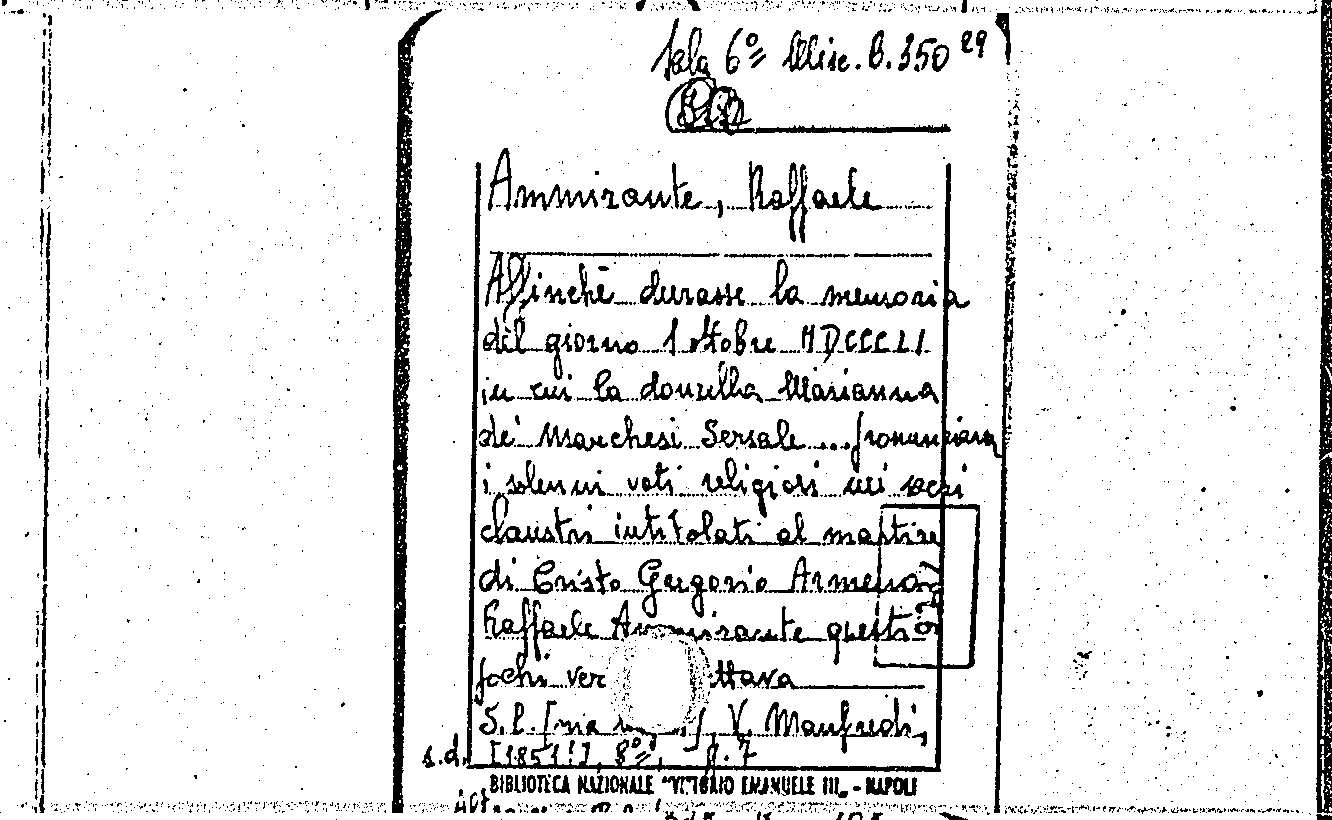 Sala 6ª Misc. B. 350 29
Ammirante, Raffaele
Affinchè durasse la memoria
del giorno 1 ottobre MDCCCLI
in cui la donzella Marianna
de' Marchesi Sersale ... pronunziava
i solenni voti religiosi nei sacri
claustri intitolati al martire
di Cristo Gregorio Armeno,
Raffaele Ammirante questi
pochi ver ttava
S. l. V. Manfredi,
s.d. [1851!], 8º, p. 7
BIBLIOTECA NAZIONALE "VITTORIO EMANUELE III„ - NAPOLI